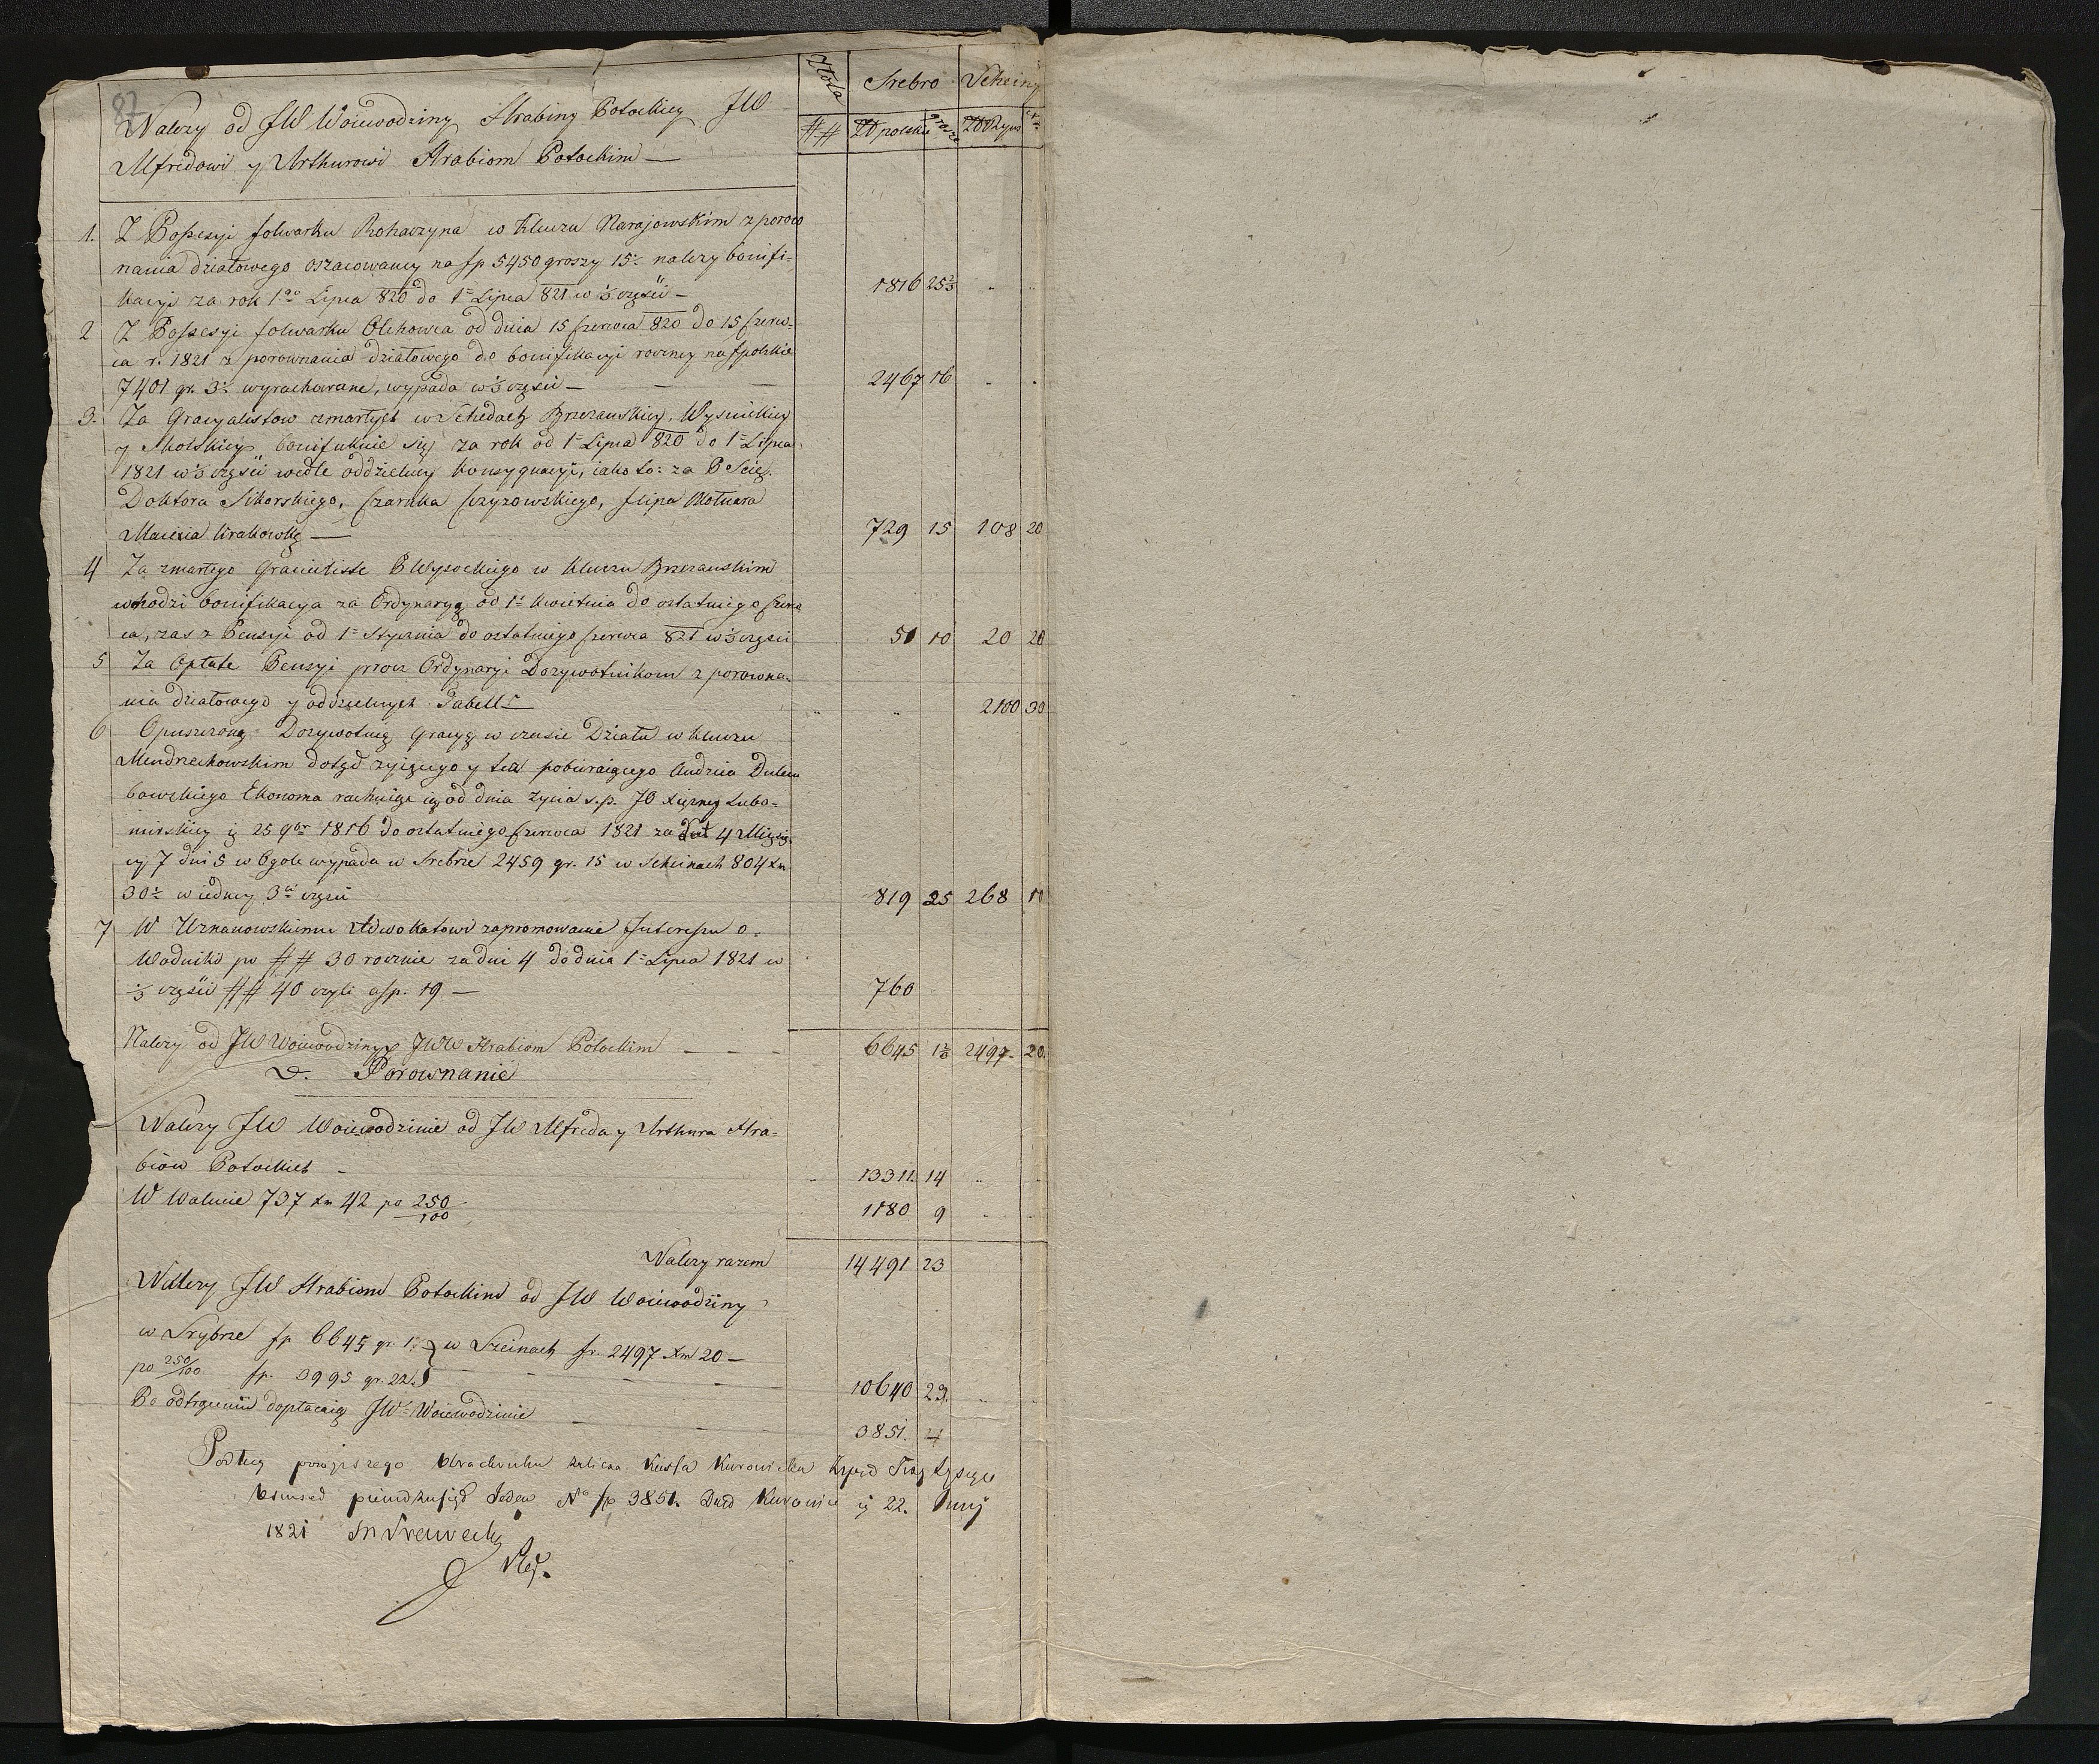 87
Złoto Srebro Scheiny
## Zł polskie grosze Zł Ryns
Należy od JW Woiewodziny Hrabiny Potockiey JW
Alfredowi y Arthurowi Hrabiom Potockim —
1. Z Possesyi folwarku Rohaczyna w Kluczu Narajowskim z porow
nania działowego oszacowaney na fp 5450 groszy 15 należy bonifi-
kacyi za rok 1go Lipca 820 do 1 Lipca 821 w ⅓ części — 1816 25⅔
2 Z Possesyi folwarku Olchowca od dnia 15 Czerwca 820 do 15 Czerw-
ca r. 1821 z porownania działowego do bonifikacyi roczney na fpolskie
7401 gr. 3 wyrachowane, wypada w ⅓ części — 2467 16
3. Za Gracyalistow zmarłych w Schedach Brzezanskiey, Wysuckiey
y Skolskiey bonifukuie się za rok od 1 Lipca 820 do 1 Lipca
1821 w ⅓ części wedle oddzielney Konsygnacyi, iako to: za P
Doktora Sikorskiego, Czarnka Czyzowskiego, filipa
Macieia Krakowkę — 729 15 108 20
4 Za zmarłego P Wysockiego w Kluczu Brzezanskim
wchodzi bonifikacya za Ordynaryą od 1 Kwietnia do ostatniego Czerw
ca, zas z Pensyi od 1 Stycznia do ostatniego Czerwca 821 w ⅓ części 51 10 20 20
5 Za Opłate Pensyi procz Ordynaryi Dozywotnikom z porowna-
nia działowego y oddzielnych Tabell — 2100 30
6 Opuszczoną Dozywotnią Gracyą w czasie Działu w Kluczu
Mendrzechowskim dotąd żyiącego y tea pobieraiącego Andrzeia
bowskiego Ekonoma rachuiąc ią od dnia Zycia s.p. JO Xiężney Lubo-
mirskiey ią 25 9br 1816 do ostatniego Czerwca 1821 za lat 4 Miesię-
cy 7 dni 5 w Ogole wypada w Srebrze 2459 gr. 15 w Scheinach 804 Xn
30 w iedney 3ci części 819 25 268 10
7 W Urzanowskiemu Adwokatowi za promowanie Interessu o-
po ## 30 rocznie za dni 4 do dnia 1 Lipca 1821 w
⅓ części ## 40 czyli a fp. 19 — 760
Należy od JW Woiewodziny JWW Hrabiom Potockim — 6645 1⅔ 2497 20.
D. Porownanie
Należy JW Woiewodzinie od JW Alfreda y Arthura Hra-
biow Potockich — 13311. 14
W Walucie 737 Xn 42 po 250/100 1180 9
Należy razem 14491 23
Należy JW Hrabiom Potockim od JW Woiewodziny
w Srybrze fp 6645 gr. 1 } w Szeinach fr. 2497 Xn 20 —
po 250/100 fp. 3995 gr. 22 } 10640 23.
Po odtrąceniu dopłacaią JW Woiewodzinie — 3851. 4
Podług powyiszego Obrachunku zalicza Kassa Kurowicka Trzy tysiące
Osmset piendziesiąt Jeden No fp 3851. Dwd Kurowice ią 22. Juny
1821